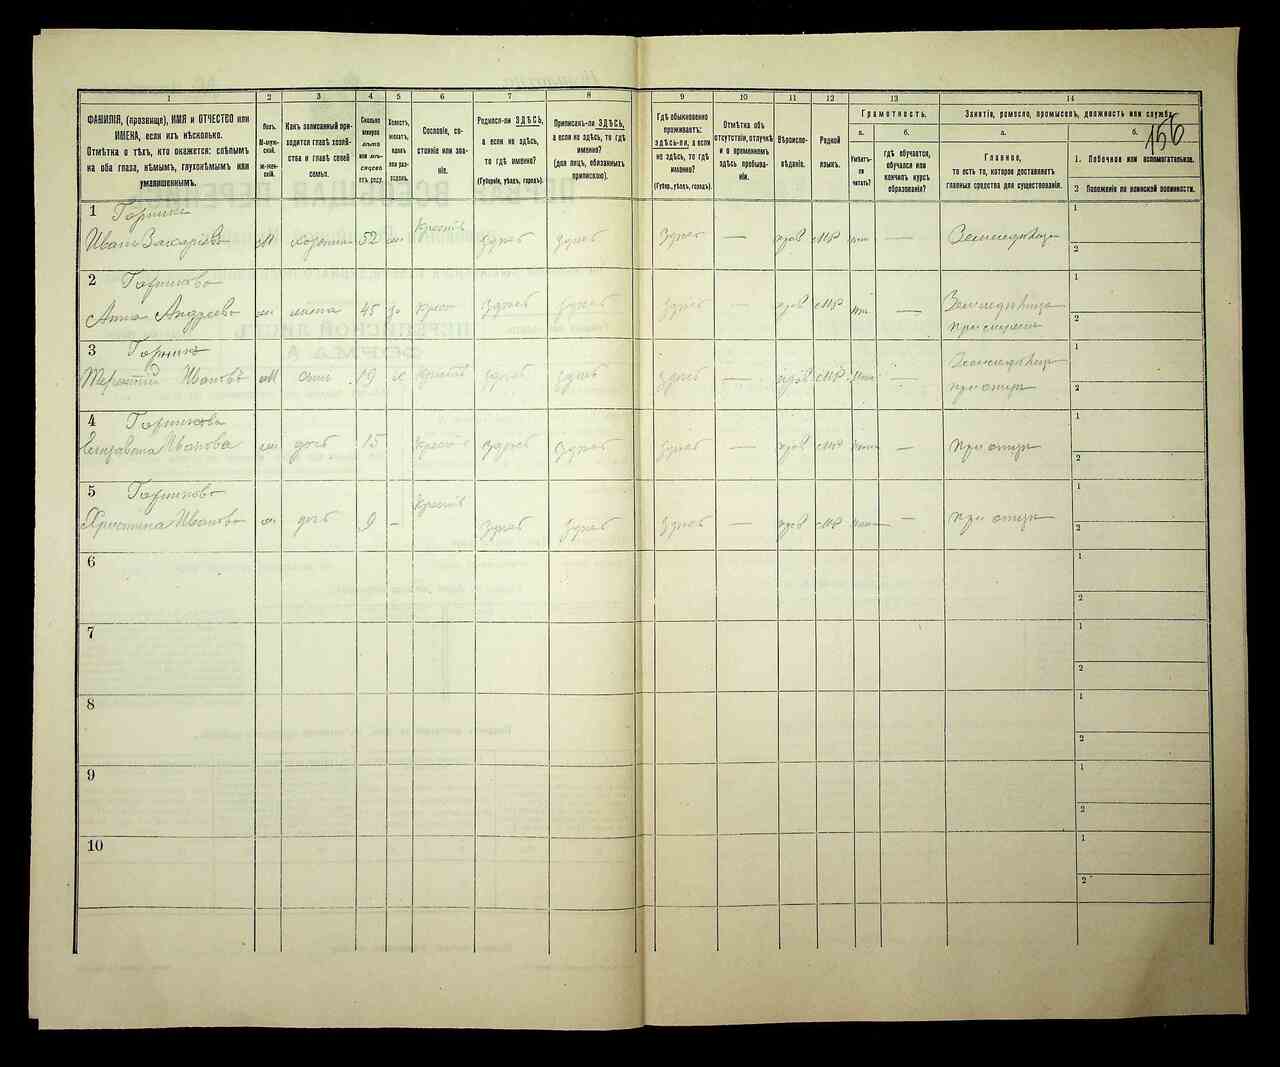 1 2 3 4 5 6 7 8 9 10 11 12 13 14
ФАМИЛІЯ, (прозвище), ИМЯ и ОТЧЕСТВО или
ИМЕНА, если ихъ нѣсколько.
Отмѣтка о тѣхъ, кто окажется: слѣпымъ
на оба глаза, нѣмымъ, глухонѣмымъ или
умалишеннымъ.
Полъ.
М-муж-
ской.
Ж-жен-
скій.
Какъ записанный при-
ходится главѣ хозяй-
ства и главѣ своей
семьи.
Сколько
минуло
лѣтъ
или мѣ-
сяцевъ
отъ роду.
Холостъ,
женатъ,
вдовъ
или раз-
веденъ.
Сословіе, со-
стояніе или зва-
ніе.
Родился-ли ЗДѢСЬ,
а если не здѣсь,
то гдѣ именно?
(Губернія, уѣздъ, городъ).
Приписанъ-ли ЗДѢСЬ,
а если не здѣсь, то гдѣ
именно?
(Для лицъ, обязанныхъ
припискою).
Гдѣ обыкновенно
проживаетъ:
здѣсь-ли, а если
не здѣсь, то гдѣ
именно?
(Губер., уѣздъ, городъ).
Отмѣтка объ
отсутствіи, отлучкѣ
и о временномъ
здѣсь пребыва-
ніи.
Вѣроиспо-
вѣданіе.
Родной
языкъ.
Грамотность.
а.
Умѣетъ-
ли
читать?
б.
гдѣ обучается,
обучался или
кончилъ курсъ
образованія?
Занятіе, ремесло, промыселъ, должность или служба.
а.
Главное,
то есть то, которое доставляетъ
главныя средства для существованія.
б.
1. Побочное или вспомогательное.
2 Положеніе по воинской повинности.
156
1
Иванъ Захаровъ м хозяинъ 52 Крестъ здѣсь здѣсь здѣсь — — 1
2
2 Горшкова
Анна Андреева жена 45 Крест здѣсь здѣсь здѣсь — — 1
2
3
Терентій Ивановъ м сынъ 19 Крестъ здѣсь здѣсь здѣсь — — 1
2
4 Горшкова
Елизавета Иванова дочь 15 Крест здѣсь здѣсь здѣсь — — при отцѣ 1
2
5 Горшкова
Христина Иванова дочь 9 — Крестъ здѣсь здѣсь здѣсь — — при отцѣ 1
2
6 1
2
7 1
2
8 1
2
9 1
2
10 1
2